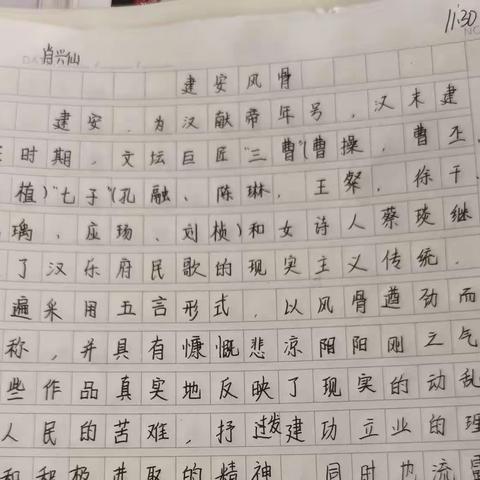 11:30
肖兴仙
建安风骨
建安,为汉献帝年号,汉末建
时期,文坛巨匠"三曹"(曹操,曹丕,
植)"七子"(孔融、陈琳,王粲,徐干,
瑀、应玚、刘桢)和女诗人蔡琰继
了汉乐府民歌的现实主义传统.
遍采用五言形式,以风骨遒劲而
称,并具有慷慨悲凉阳阳刚之气
些作品真实地反映了现实的动乱
人民的苦难,抒发建功立业的理
和积极进取的精神 同时也流露